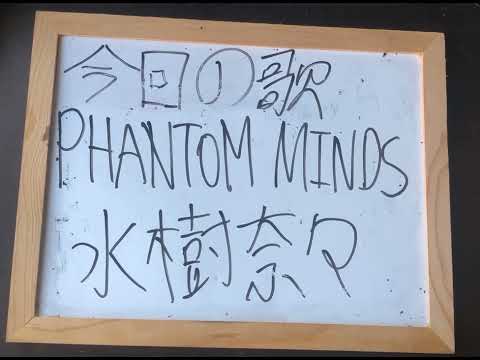 今回の歌
PHANTOM MINDS
水樹奈々